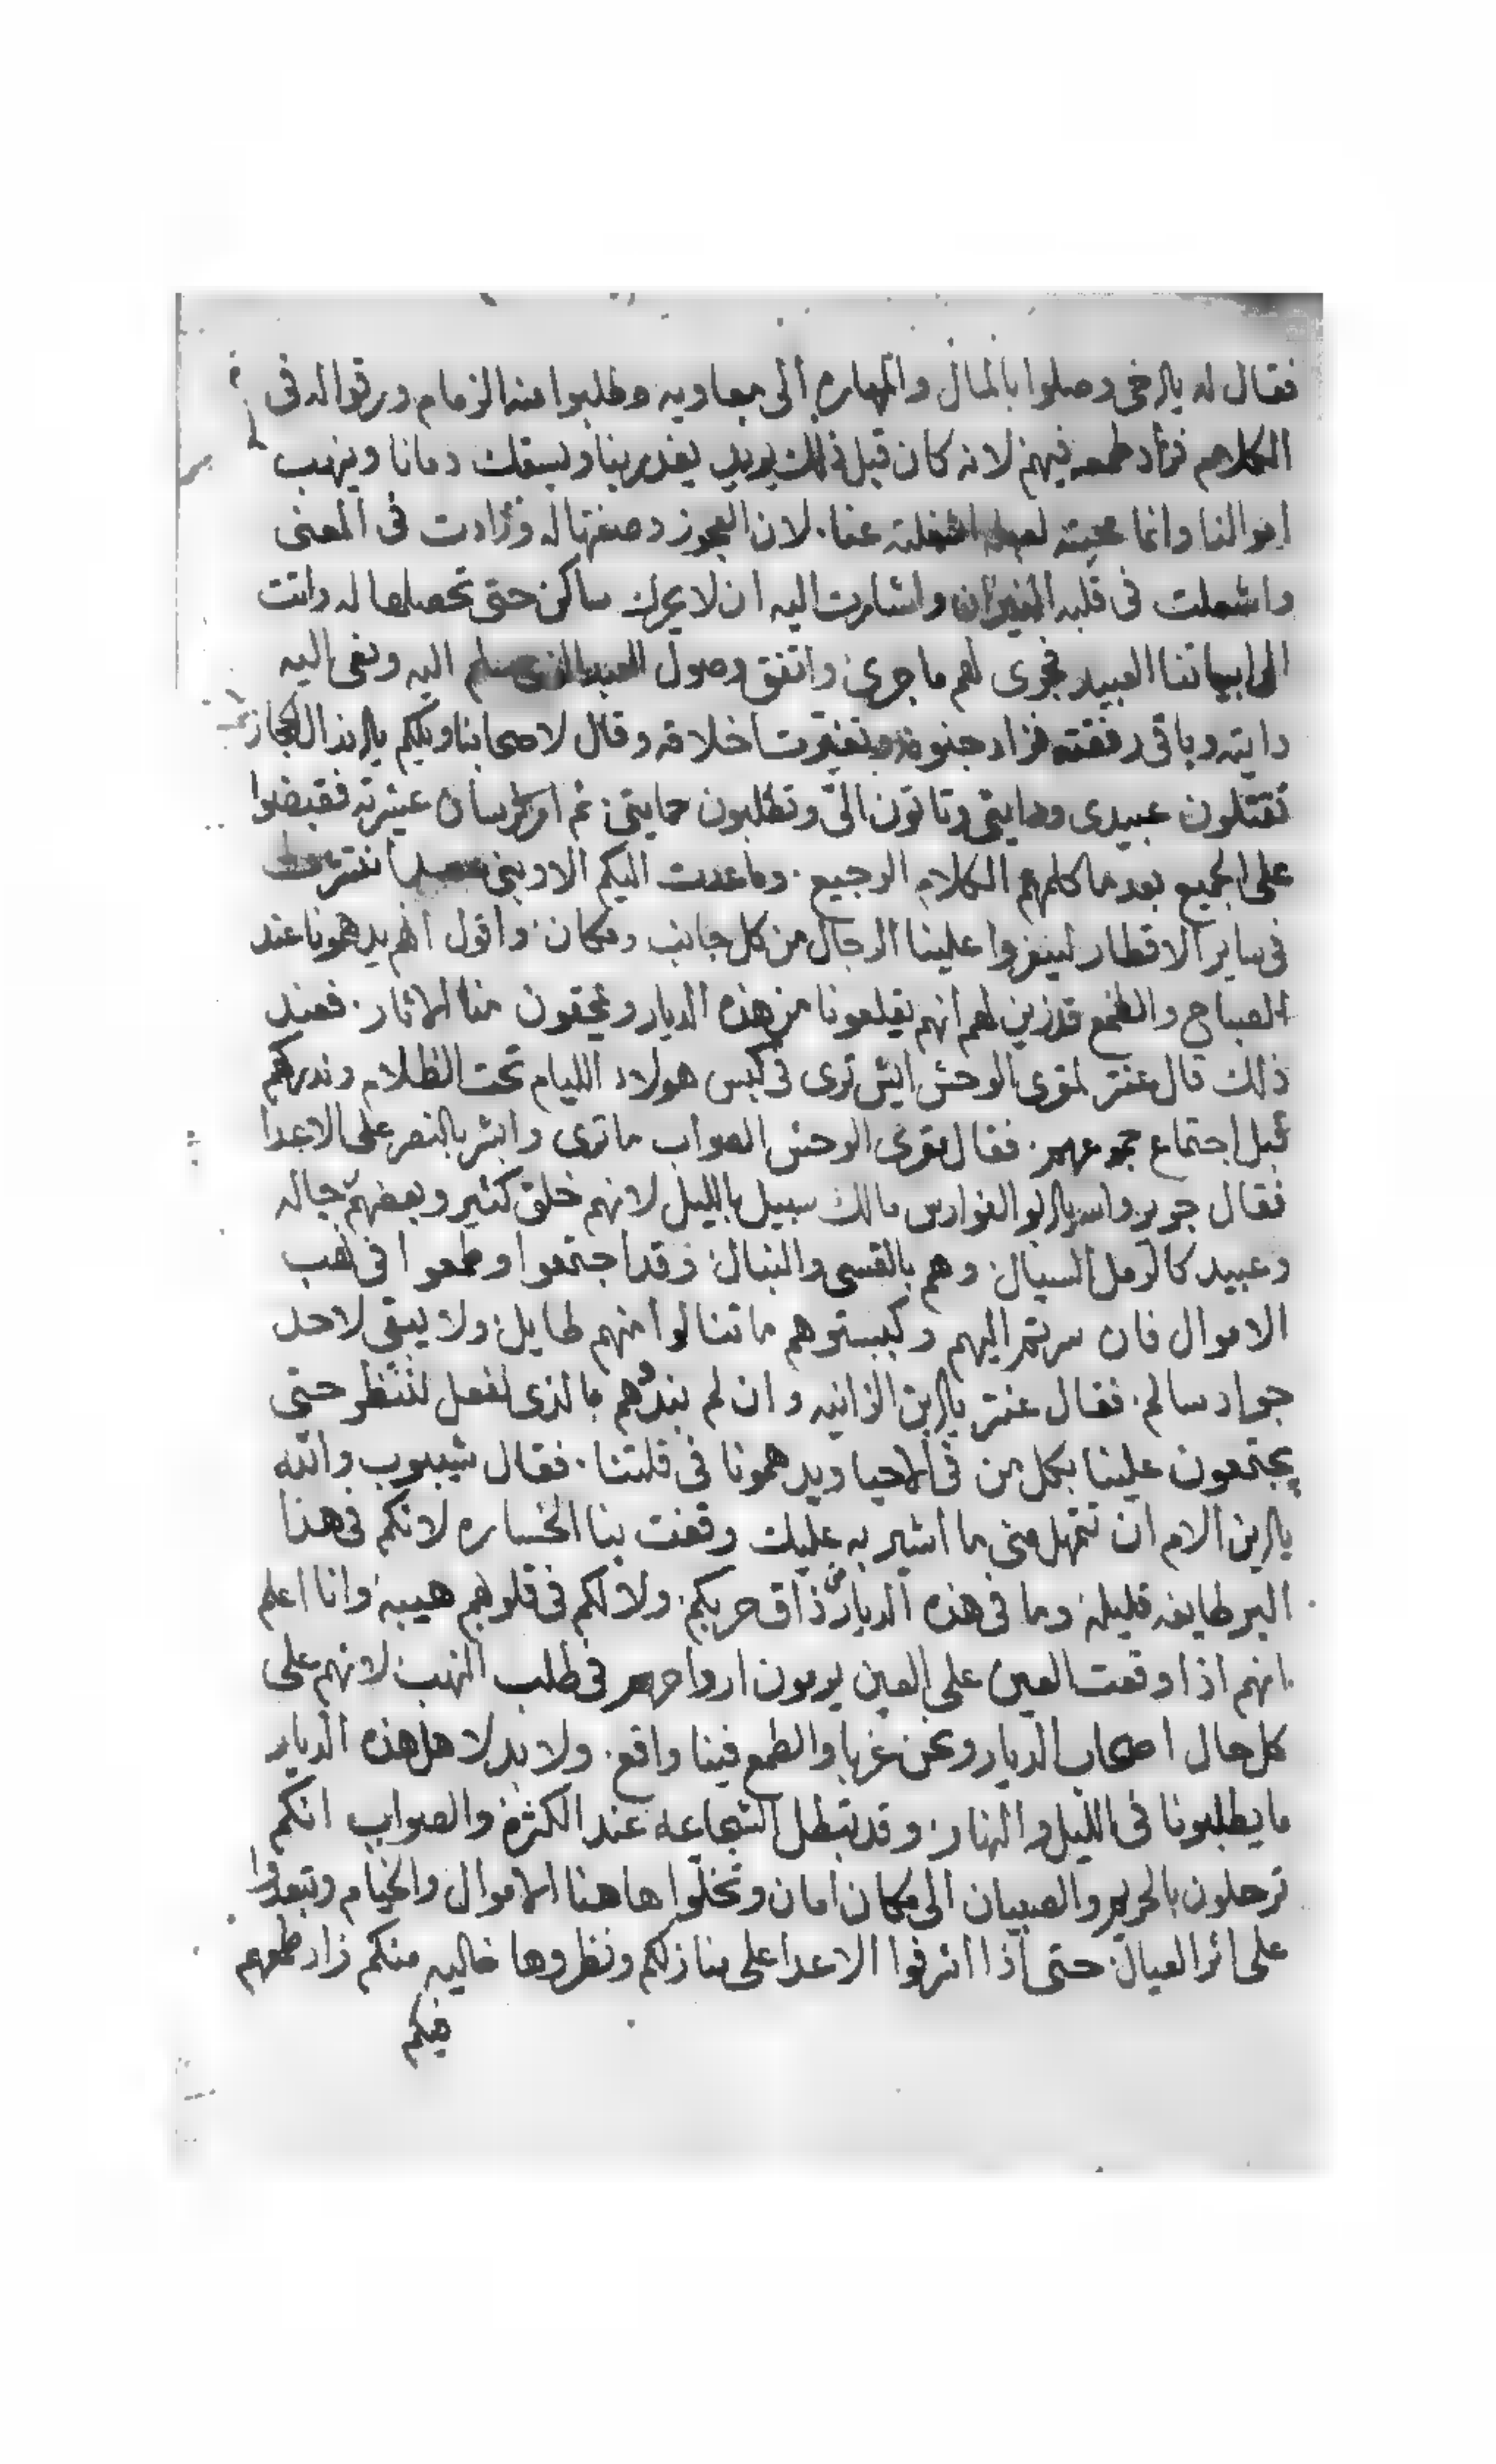 فقال له يا اخى وصلوا بالمال والمهاره الى معاويه وطلبوا منه الزمام ورقوا له فى
الكلام فزاد طمعه فيهم لانه كان قبل ذلك يريد يغدر بنا ويسفك دمانا وينهب
اموالنا وانما محبته لعبله اشغلته عنا. لان العجوز وصفتها له وزادت فى المعنى
واشعلت فى قلبه النيران واشارت اليه ان لا يحرك ساكن حتى تحصلها له واتت
الى ابياتنا العبيد فجرى لهم ما جرى واتفق وصول العبد الذى سلم اليه ونعى اليه
دايته وباقى رفقته فزاد جنونه وتغيرت اخلاقه وقال لاصحابنا ويلكم يا اندال الحجاز
تقتلون عبيدى ودايتى وتاتون الىّ وتطلبون حمايتى ثم امر فرسان عشيرته فقبضوا
على الجميع بعد ما كلمهم الكلام الوجيع. وما عدت اليكم الا وبنى تفترق
فى ساير الاقطار لينفروا علينا الرجال من كل جانب ومكان واقول انهم يدهمونا عند
الصباح والطمع قد زين لهم انهم يقلعونا من هذه الديار ويمحقون منا الاثار. فعند
ذلك قال عنتر لمقرى الوحش ايش ترى فى كبس هولاء الليام تحت الظلام وندركهم
قبل اجتماع جموعهم. فقال مقرى الوحش الصواب ما ترى وابشر بالنصر على الاعدا
فقال جرير والله يا ابو الفوارس مالك سبيل بالليل لانهم خلق كثير وبعضهم رجاله
وعبيد كالرمل السيال وهم بالقسى والنبال وقد اجتمعوا وطمعوا فى نهب
الاموال فان سرتم اليهم وكبستوهم ما تنالوا منهم طايل ولا يبقى لاحد
جواد سالم. فقال عنتر يا ابن الزانيه وان لم نبدهم ما الذى نفعل ننتظر حتى
يجتمعون علينا بكل من فى الاحيا ويدهمونا فى قلتنا. فقال شيبوب والله
يا ابن الام ان تتمهل منى ما اشير به عليك وقعت بنا الخساره لانكم فى هذا
البر طايفه قليله وما فى هذه الديار من ذاق حربكم. ولا لكم فى قلوبهم هيبه وانا اعلم
انهم اذا وقعت العين على العين يرمون ارواحهم فى طلب النهب لانهم على
كل حال اصحاب الديار ونحن غربا والطمع فينا واقع. ولا بد لاهل هذه الديار
ما يطلبونا فى الليل والنهار وقد تبطل الشجاعه عند الكثره والصواب انكم
ترحلون بالحريم والصبيان الى مكان امان وتخلوا هاهنا الاموال والخيام وتبعدوا
على اثر العيال حتى اذا اشرفوا الاعدا على منازلكم ونظروها خاليه منكم زاد طمعهم
فيكم